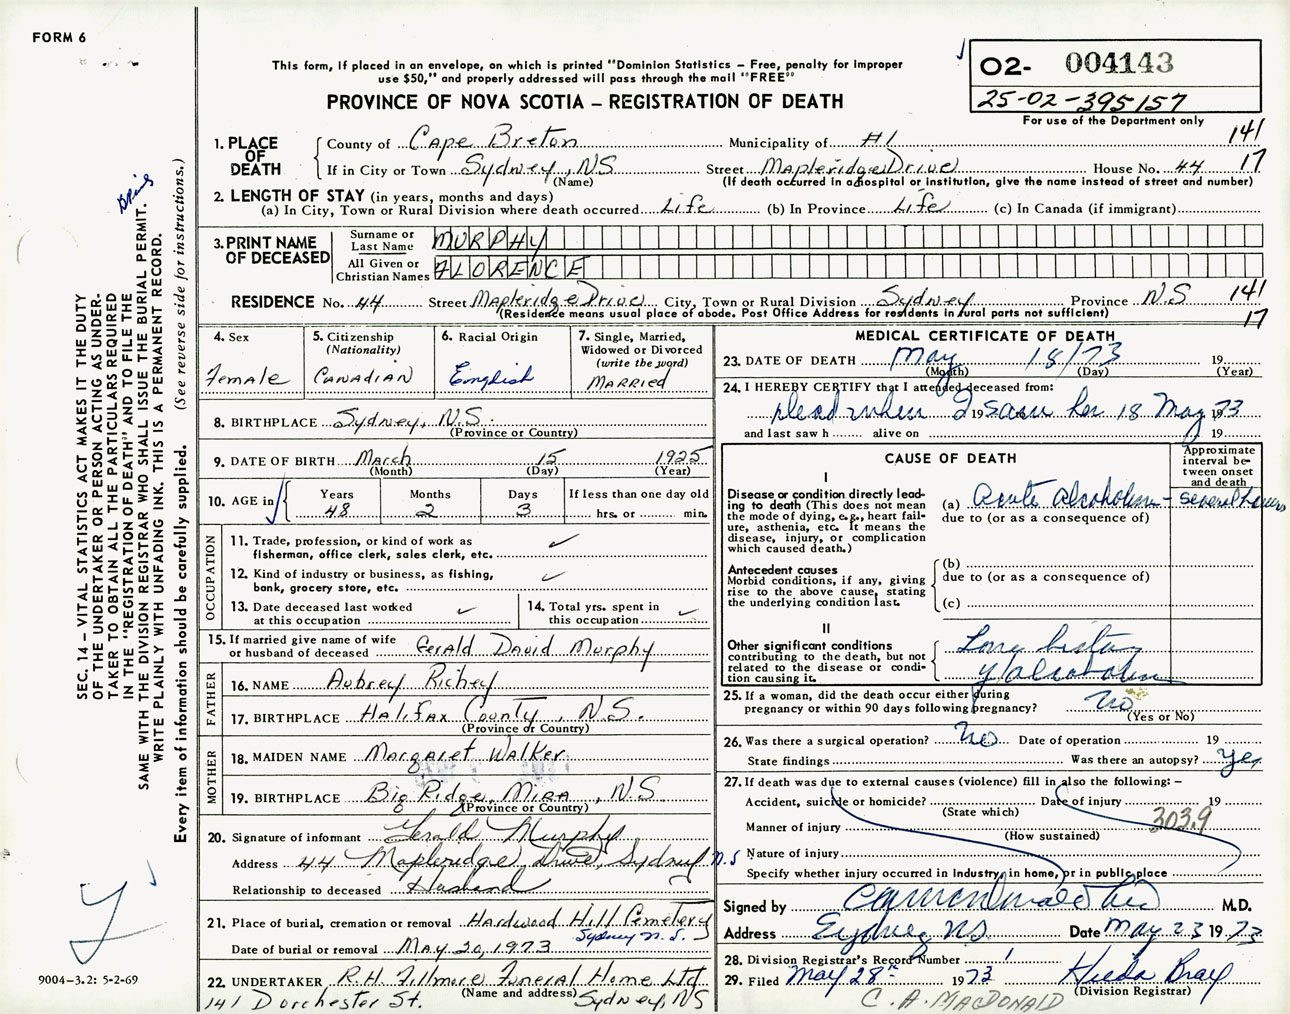 FORM 6
This form, if placed in an envelope, on which is printed "Dominion Statistics – Free, penalty for improper
use $50," and properly addressed will pass through the mail "FREE"
PROVINCE OF NOVA SCOTIA – REGISTRATION OF DEATH
02- 004143
25-02-395157
For use of the Department only
1. PLACE OF DEATH
County of Cape Breton Municipality of #1 141
If in City or Town Sydney, NS Street Mapleridge Drive House No. 44 17
(Name) (If death occurred in a hospital or institution, give the name instead of street and number)
2. LENGTH OF STAY (in years, months and days)
(a) In City, Town or Rural Division where death occurred Life (b) In Province Life (c) In Canada (if immigrant)
3. PRINT NAME OF DECEASED
Surname or Last Name MURPHY
All Given or Christian Names FLORENCE
RESIDENCE No. 44 Street Mapleridge Drive City, Town or Rural Division Sydney Province N.S 141
(Residence means usual place of abode. Post Office Address for residents in rural parts not sufficient) 17
4. Sex
Female
5. Citizenship
(Nationality)
CANADIAN
6. Racial Origin
English
7. Single, Married,
Widowed or Divorced
(write the word)
MARRIED
8. BIRTHPLACE Sydney, N.S.
(Province or Country)
9. DATE OF BIRTH March 15 1925
(Month) (Day) (Year)
10. AGE in
Years Months Days If less than one day old
48 2 3 hrs. or min.
OCCUPATION
11. Trade, profession, or kind of work as
fisherman, office clerk, sales clerk, etc.
12. Kind of industry or business, as fishing,
bank, grocery store, etc.
13. Date deceased last worked
at this occupation
14. Total yrs. spent in
this occupation
15. If married give name of wife
or husband of deceased Gerald David Murphy
FATHER
16. NAME Aubrey Richey
17. BIRTHPLACE Halifax County, N.S.
(Province or Country)
MOTHER
18. MAIDEN NAME Margaret Walker
19. BIRTHPLACE Big Ridge, Mira, N.S
(Province or Country)
20. Signature of informant Gerald Murphy
Address 44 Mapleridge Drive, Sydney N.S
Relationship to deceased Husband
21. Place of burial, cremation or removal Hardwood Hill Cemetery
Sydney N.S.
Date of burial or removal May 20, 1973
22. UNDERTAKER R.H. Fillmore Funeral Home Ltd
(Name and address)
141 Dorchester St. Sydney, NS
MEDICAL CERTIFICATE OF DEATH
23. DATE OF DEATH May 18/73 19
(Month) (Day) (Year)
24. I HEREBY CERTIFY that I attended deceased from:
dead when I saw her 18 May 1973
and last saw h alive on 19
CAUSE OF DEATH
Approximate
interval be-
tween onset
and death
I
Disease or condition directly lead-
ing to death (This does not mean
the mode of dying, e.g., heart fail-
ure, asthenia, etc. It means the
disease, injury, or complication
which caused death.)
(a) Acute alcoholism – several hours
due to (or as a consequence of)
Antecedent causes
Morbid conditions, if any, giving
rise to the above cause, stating
the underlying condition last.
(b)
due to (or as a consequence of)
(c)
II
Other significant conditions
contributing to the death, but not
related to the disease or condi-
tion causing it.
Long history
of alcoholism
25. If a woman, did the death occur either during
pregnancy or within 90 days following pregnancy? No
(Yes or No)
26. Was there a surgical operation? No Date of operation 19
State findings Was there an autopsy? Yes
27. If death was due to external causes (violence) fill in also the following: –
Accident, suicide or homicide? Date of injury 19
(State which)
Manner of injury 303.9
(How sustained)
Nature of injury
Specify whether injury occurred in Industry, in home, or in public place
Signed by M.D.
Address Sydney NS Date May 23 1973
28. Division Registrar's Record Number 1
29. Filed May 28th 1973 Hilda Bray
(Division Registrar)
C. A. MACDONALD
SEC. 14 – VITAL STATISTICS ACT MAKES IT THE DUTY
OF THE UNDERTAKER OR PERSON ACTING AS UNDER-
TAKER TO OBTAIN ALL THE PARTICULARS REQUIRED
IN THE "REGISTRATION OF DEATH" AND TO FILE THE
SAME WITH THE DIVISION REGISTRAR WHO SHALL ISSUE THE BURIAL PERMIT.
WRITE PLAINLY WITH UNFADING INK. THIS IS A PERMANENT RECORD.
Every item of information should be carefully supplied. (See reverse side for instructions.)
9004-3.2: 5-2-69